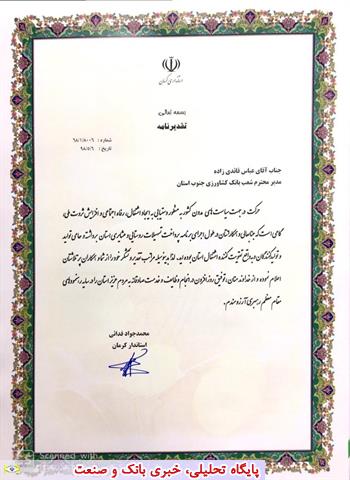 استانداری کرمان
بسمه تعالی
تقدیرنامه
شماره : ۹۸/۱/۸۰۰۶
تاریخ : ۹۸/۵/۶
جناب آقای عباس قائدی زاده
مدیر محترم شعب بانک کشاورزی جنوب استان
حرکت در جهت سیاست‌های مدون کشور به منظور دستیابی به ایجاد اشتغال، رفاه اجتماعی و افزایش ثروت ملی
گامی است که جنابعالی و همکارانتان در طول اجرای برنامه پرداخت تسهیلات روستایی و عشایری استان برداشته و حامی تولید
و تولیدکنندگان و به واقع تقویت کننده اشتغال استان بوده اید. لذا بدینوسیله مراتب تقدیر و تشکر خود را از شما و همکاران پرتلاشتان
اعلام نموده و از خداوند منان، توفیق روزافزون در انجام وظایف و خدمت صادقانه به مردم عزیز استان را در سایه رهنمودهای
مقام معظم رهبری آرزومندم.
محمدجواد فدائی
استاندار کرمان
Scanned with
پایگاه تحلیلی، خبری بانک و صنعت